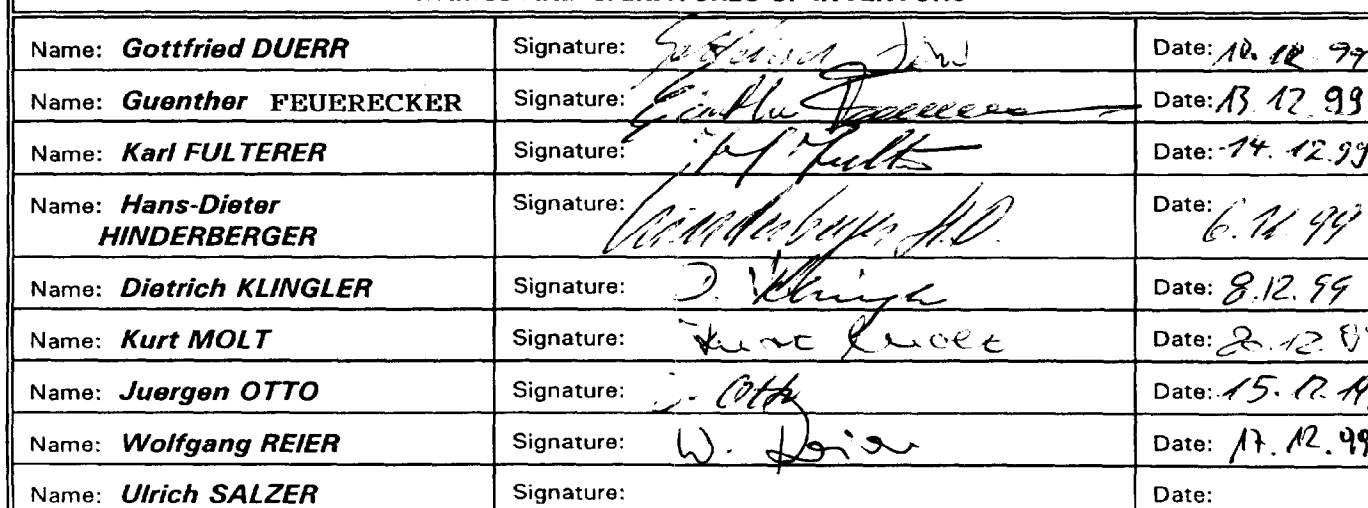 Name: Gottfried DUERR Signature: Gottfried Dürr Date: 10. 12. 99
Name: Guenther FEUERECKER Signature: Date: 13. 12. 99
Name: Karl FULTERER Signature: Date: 14. 12. 99
Name: Hans-Dieter Signature: Hinderberger H.D. Date: 6. 12. 99
HINDERBERGER
Name: Dietrich KLINGLER Signature: D. Klingler Date: 8. 12. 99
Name: Kurt MOLT Signature: Kurt Molt Date: 20. 12.
Name: Juergen OTTO Signature: J. Otto Date: 15. 12.
Name: Wolfgang REIER Signature: W. Reier Date: 17. 12. 99
Name: Ulrich SALZER Signature: Date: